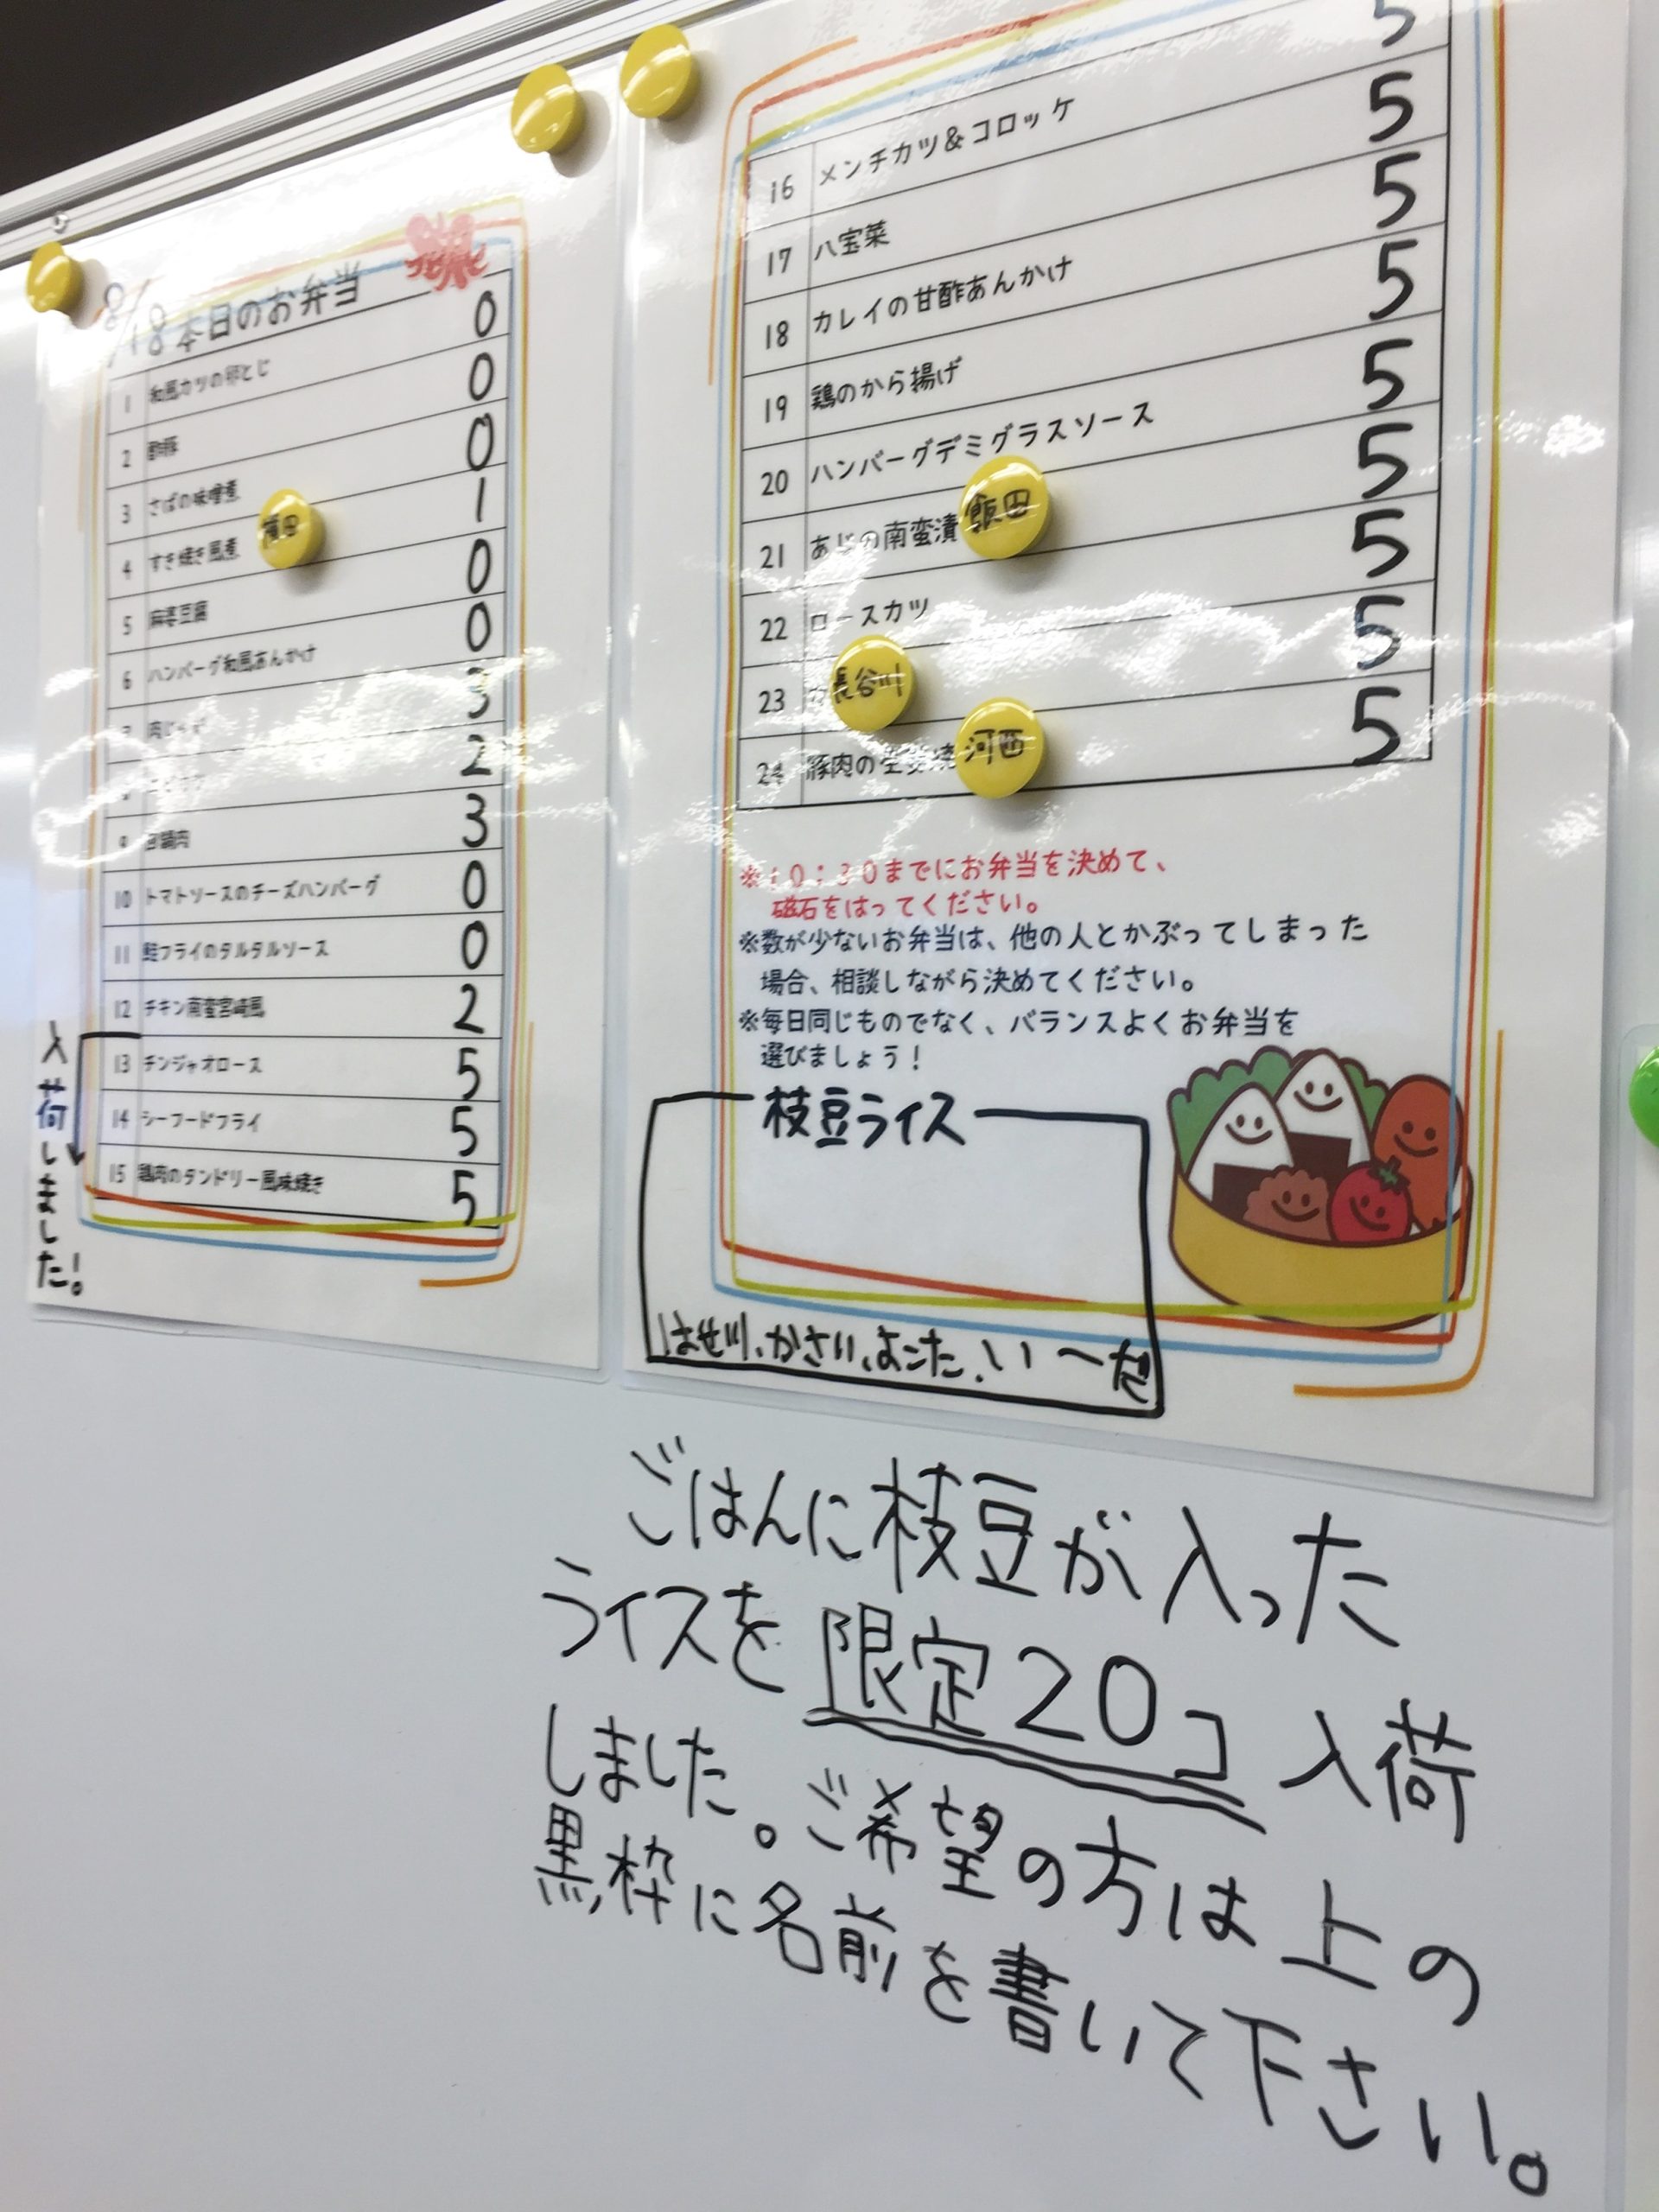 8/18 本日のお弁当
1 和風カツの卵とじ 0
2 酢豚 0
3 さばの味噌煮 0
4 すき焼き風煮 1
横田
5 麻婆豆腐 0
6 ハンバーグ和風あんかけ 0
肉じゃが
2
9 回鍋肉 3
10 トマトソースのチーズハンバーグ 0
11 鮭フライのタルタルソース 0
12 チキン南蛮宮崎風 2
13 チンジャオロース 5
14 シーフードフライ 5
15 鶏肉のタンドリー風味焼き 5
入荷しました!。
5
16 メンチカツ&コロッケ 5
17 八宝菜 5
18 カレイの甘酢あんかけ 5
19 鶏のから揚げ 5
20 ハンバーグデミグラスソース 5
21 あじの南蛮漬 5
飯田
22 ロースカツ 5
23 5
長谷川
24 豚肉の生姜焼 5
河西
※10:30までにお弁当を決めて、
磁石をはってください。
※数が少ないお弁当は、他の人とかぶってしまった
場合、相談しながら決めてください。
※毎日同じものでなく、バランスよくお弁当を
選びましょう!
枝豆ライス
はせ川、かさい、よこた、い〜だ
ごはんに枝豆が入った
ライスを限定20コ入荷
しました。ご希望の方は上の
黒枠に名前を書いて下さい。